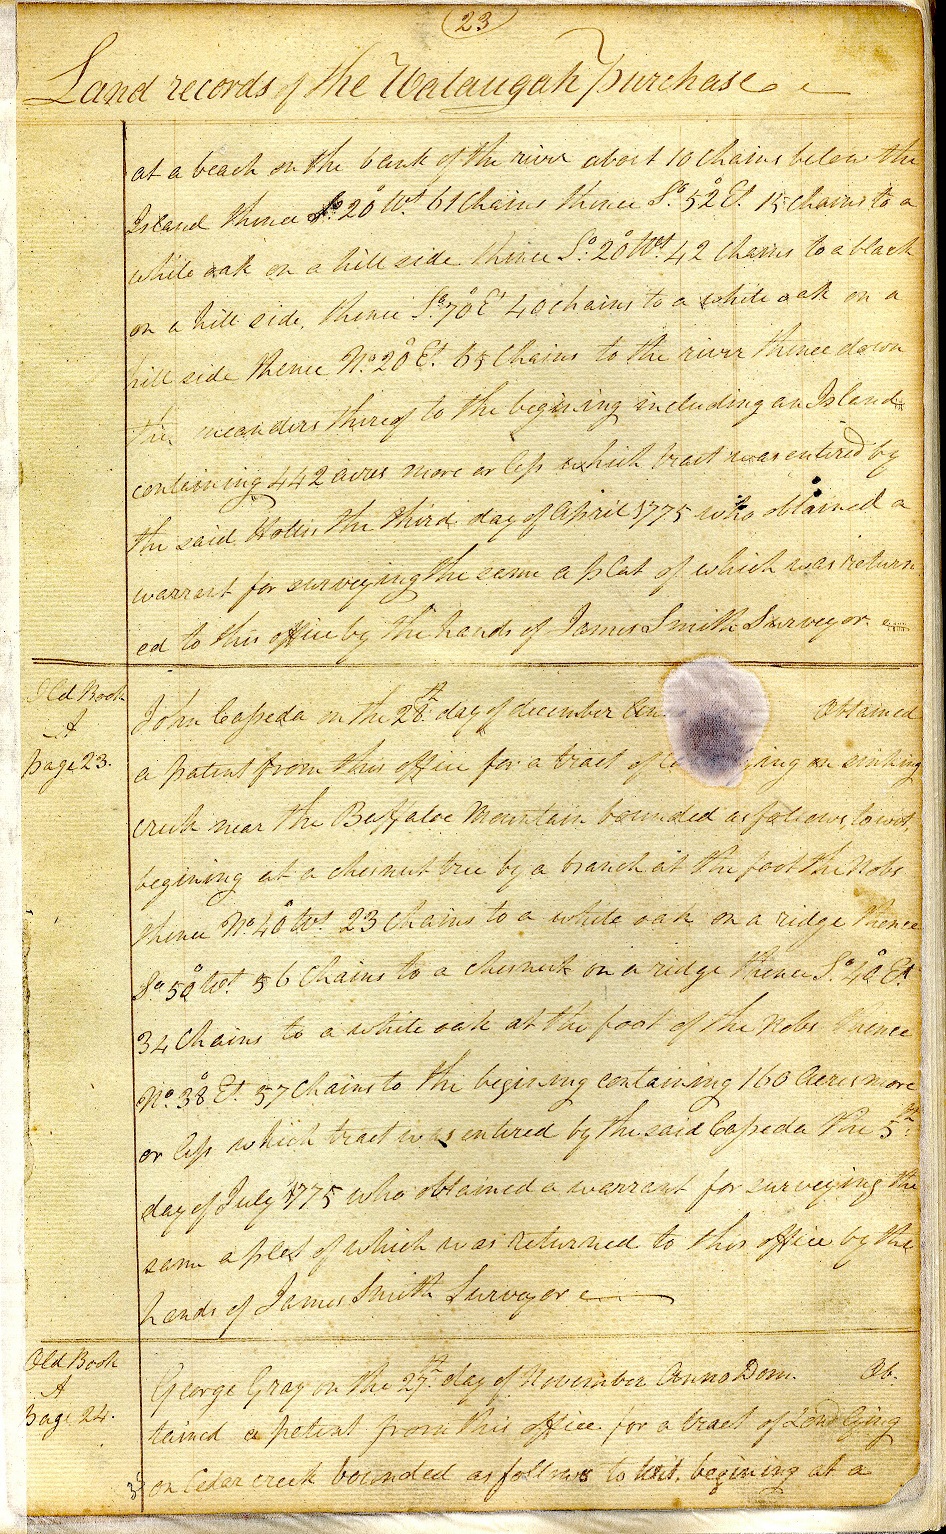 23
Land records of the Wataugah purchase
at a beach on the bank of the river about 10 Chains below the
Island thence So. 20° Wt. 61 Chains thence So. 52° Et. 15 chains to a
white oak on a hill side thence So. 20° Wt. 42 Chains to a black
on a hill side, thence So. 70° Et 40 chains to a white oak on a
hill side thence No. 20° Et. 65 Chains to the river thence down
the meanders thereof to the begining including an Island
containing 442 acres more or less which tract was entered by
the said the third day of April 1775 who obtained a
warrant for surveying the same a plat of which was return
ed to this office by the hands of James Smith Surveyor
Old Book
A
page 23.
John Casseda on the 28th. day of december Obtained
a patent from this office for a tract of lying on sinking
creek near the Buffaloe Mountain bounded as follows, towit,
begining at a chesnut tree by a branch at the foot the Nobs
thence No. 40° Wt. 23 Chains to a white oak on a ridge thence
So. 50° Wt. 56 Chains to a chesnut on a ridge thence So. 40° Et.
34 Chains to a white oak at the foot of the Nobs thence
No. 38° Et. 57 Chains to the begining containing 160 Acres more
or less which tract was entered by the said Casseda the 5th.
day of July 1775 who obtained a warrant for surveying the
same a plat of which was returned to this office by the
hands of James Smith Surveyor
Old Book
A
Page 24.
George Gray on the 27th. day of November Anno Dom. Ob-
tained a patent from this office for a tract of Land lying
on Cedar creek bounded as follows to wit. begining at a